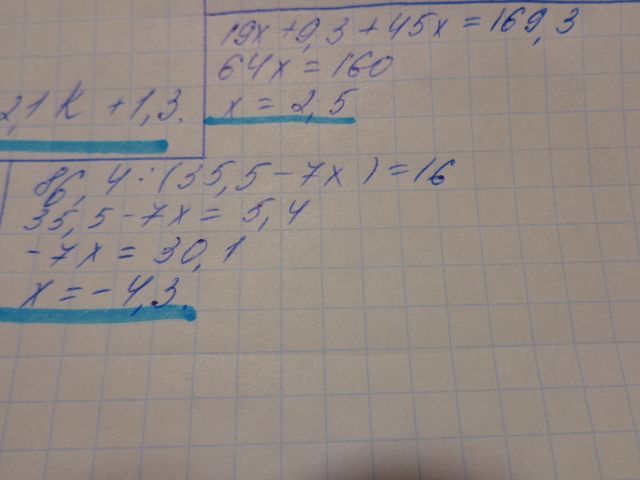 19x + 9,3 + 45x = 169,3
64x = 160
x = 2,5
2,1k + 1,3.
86,4 : (35,5 - 7x) = 16
35,5 - 7x = 5,4
-7x = 30,1
x = -4,3.